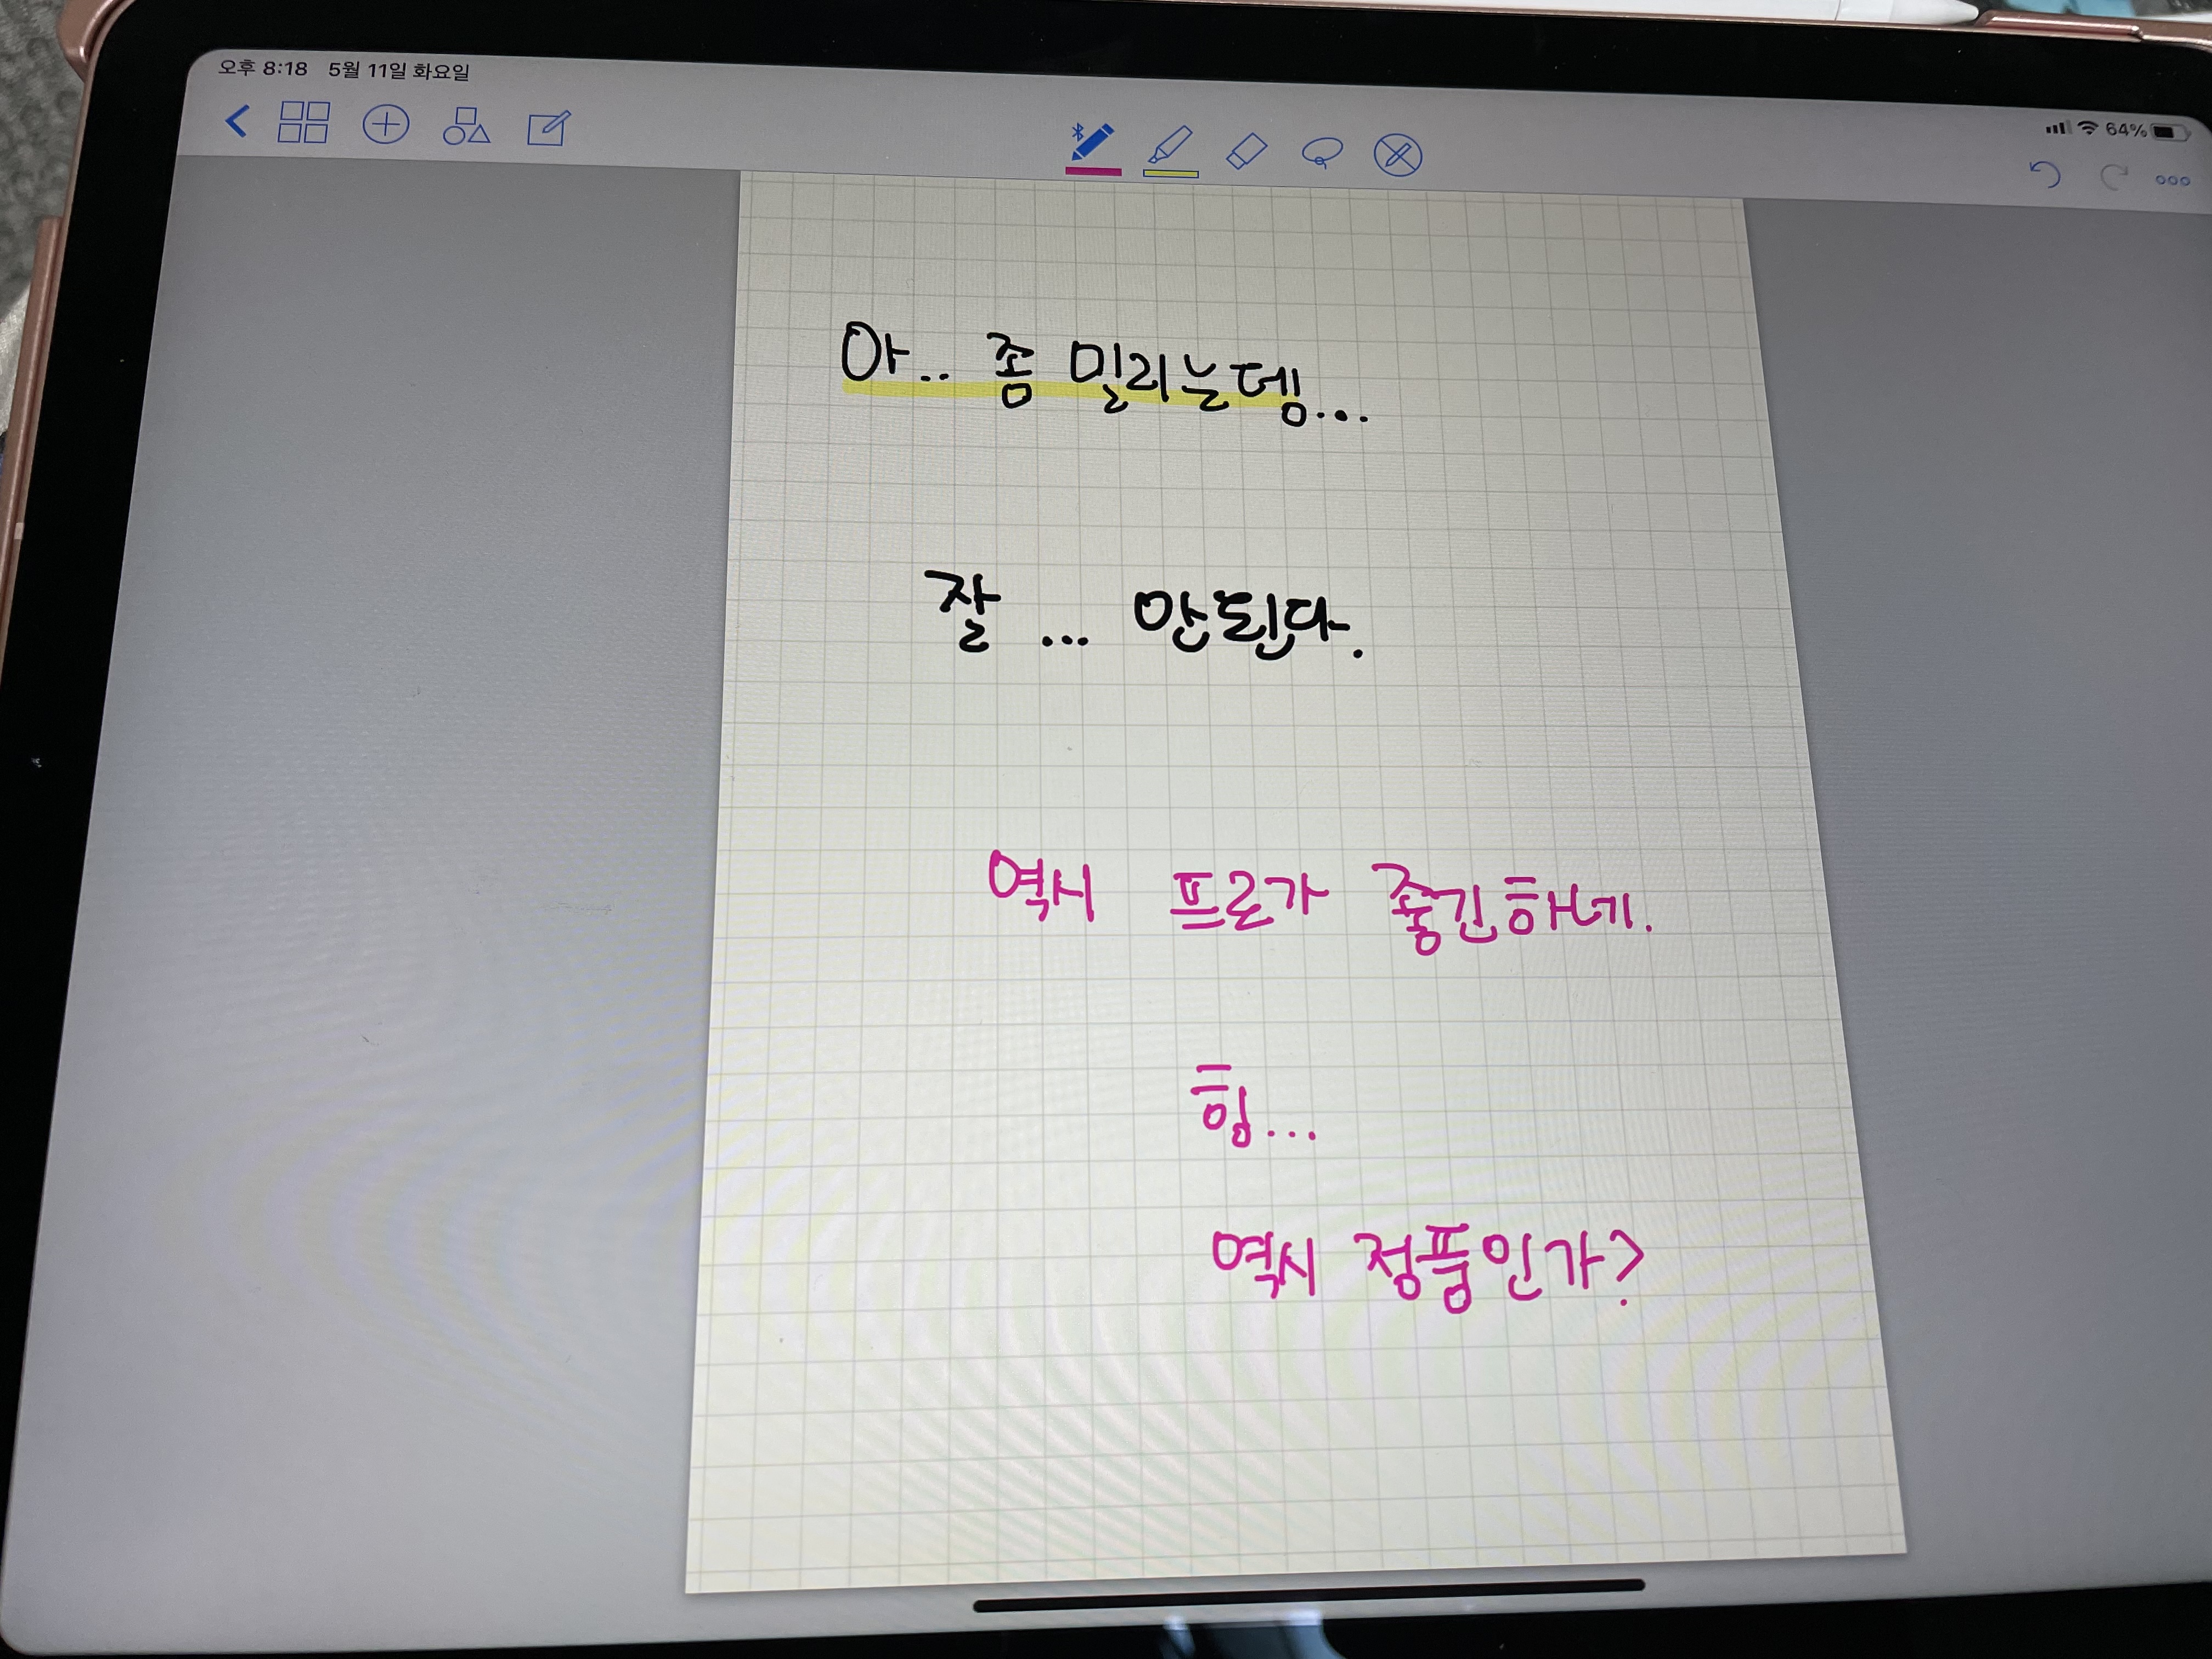 오후 8:18 5월 11일 화요일
64%
아.. 좀 밀리는뎅...
잘 ... 안된다.
역시 프로가 좋긴하네.
힝...
역시 정품인가?